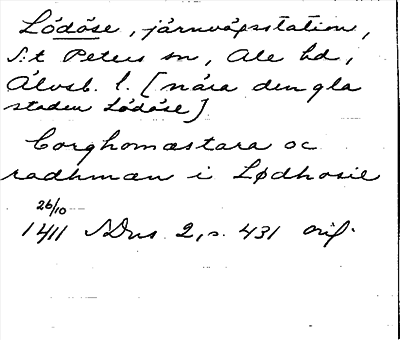 Lödöse, järnvägsstation,
S:t Peters sn, Ale hd,
Älvsb. l. [nära den gla
staden Lödöse]
borghomæstara oc
radhmæn i Lødhosie
26/10
1411 SDns 2, s. 431 orig.